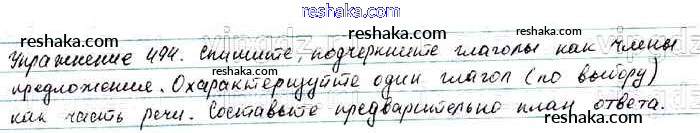 reshaka.com
reshaka.com reshaka.com
Упражнение 494. Спишите, подчеркните глаголы как члены
reshaka.com reshaka.com
предложение. Охарактеризуйте один глагол (по выбору)
как часть речи. Составьте предварительно план ответа.
reshaka.com reshaka.com